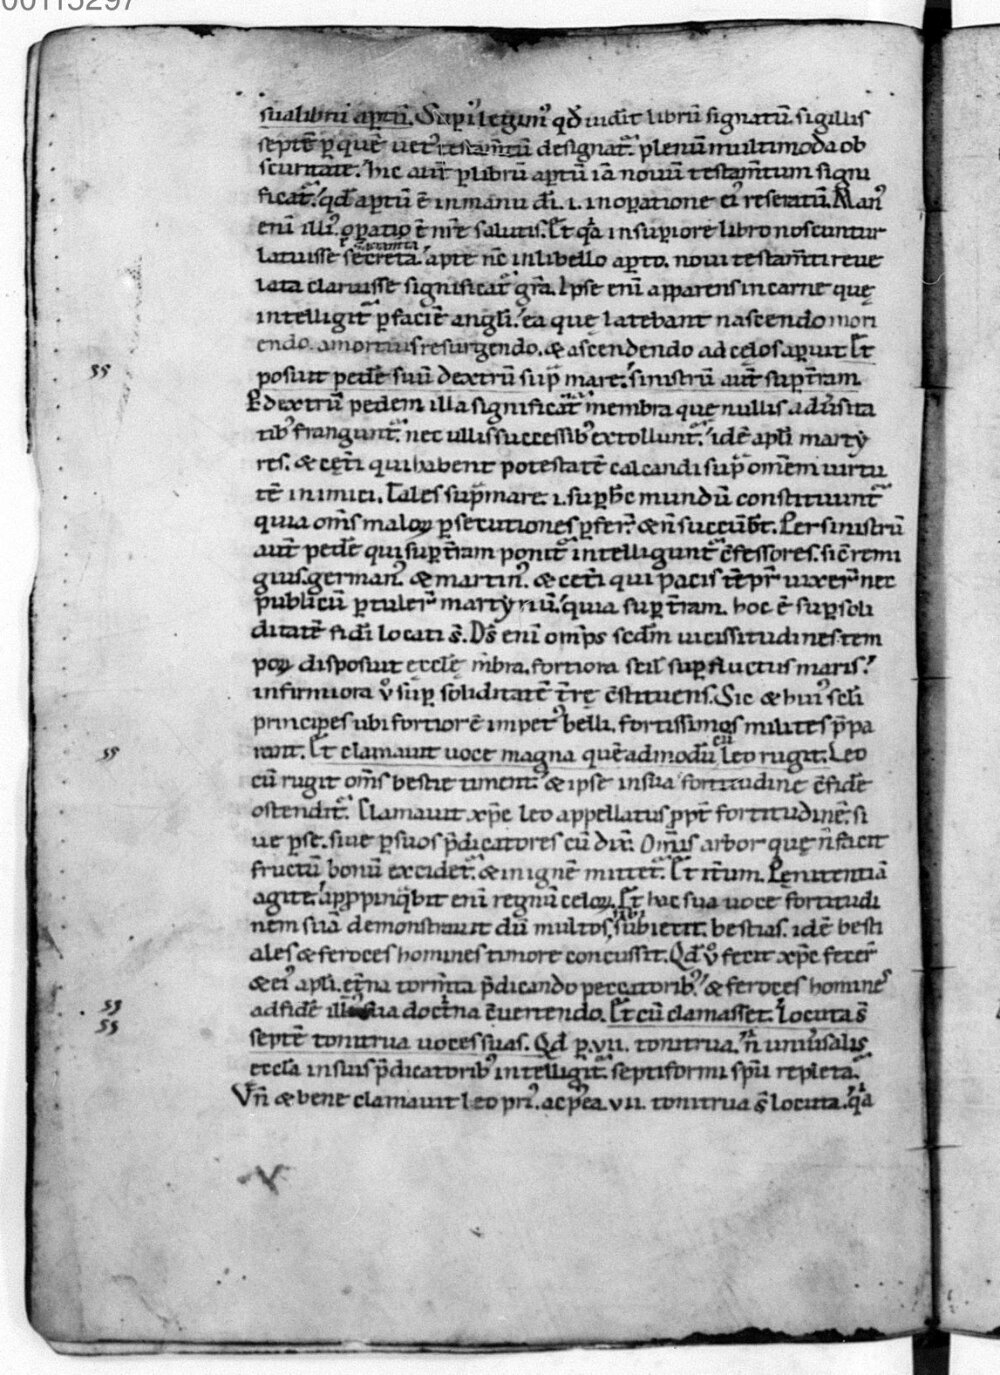 00115297
sua librū aptū. Supi᷒ legim᷒ qd̄ uidit librū signatū sigillis
septē p̱ quē uet᷒ testam̄tū designat᷑. plenū multimoda ob
scuritate. hic aut̄ p̱ librū aptū iā nouū testam̄tum signi
ficat᷑. qd̄ aptū ē in manu dī. .i. in op̱atione ei᷒ reseratū. Man᷒
enī illi᷒ op̱atio ē nr̄e salutis. Et qͣ in sup̱iore libro noscuntur
latuisse secreta. apte nc̄ in libello ap̱to. noui testam̄ti reue
lata claruisse significat᷑ gr̄a. Ipse enī apparens in carne quę
intelligit᷑ p̱ faciē angli. ea quę latebant nascendo mori
endo. a mortuis resurgendo. & ascendendo ad celos ap̱uit Et
55 posuit pedē suū dextrū sup̱ mare. sinistrū aut̄ sup̱ t̄ram.
P̱ dextrū pedem illa significat᷑ membra quę nullis aduśita
tib᷒ frangunt᷑. nec ullis successib᷒ extollunt᷑. idē apl̄i marty
res. & cęt̄i qui habent potestatē calcandi sup̱ om̄em uirtu
tē inimici. Tales sup̱ mare .i. sup̱ hc̄ mundū constituunt᷑
quia om̄s maloꝝ p̱secutiones p̱fer̄. & n̄ succūbt̄. Per sinistrū
aut̄ pedē qui sup̱ t̄ram ponit᷑ intelligunt᷑ c̄fessores. sic̄ remi
gius. german᷒. & martin᷒. & cet̄i qui pacis tēpr̄ uixer̄ nec
publicū p̱tuler̄ martyriū. quia sup̱ t̄ram. hoc ē sup̱ soli
ditatē fidei locati s̄. Ds̄ enī om̄ps scdm̄ uicissitudines tem
poꝝ disposuit ęcclę m̄bra. fortiora scil᷒ sup̱ fluctus maris.
infirmiora ů sup̱ soliditatē t̄rę c̄stituens. Sic & hui᷒ scl̄i
principes ubi fortior ē impet᷒ belli. fortissimos milites p̄pa
55 rant. Et clamauit uoce magna quēadmodū cū leo rugit. Leo
cū rugit om̄s bestie timent. & ipse in sua fortitudine c̄fidē
ostendit᷑. Clamauit xp̄c leo appellatus ppt̄ fortitudinē. si
ue p̱ se. siue p̱ suos p̄dicatores cū dix̄. Om̄is arbor quę n̄ facit
fructū bonū excidet᷑. & in ignē mittet᷑. Et it̄um. Penitentiā
agite. appropinq̄bit enī regnū celoꝝ. Et hac sua uoce fortitudi
nem suā demonstrauit dū multos sibi subiecit. bestias. idē besti
ales & feroces homines timore concussit. Qd̄ ů fecit xp̄c fecer̄
& ei᷒ apl̄i. et̄na torm̄ta p̄dicando peccatorib᷒. & feroces homines
53 ad fidē sua doct̄na c̄uertendo. Et cū clamasset. Locuta s̄
53 septē tonitrua uoces suas. Qd̄ p̱ .vii. tonitrua. n̄ uniuśalis
eccl̄a in suis p̄dicatorib᷒ intelligit᷑ septiformi sp̄u repleta.
Vn̄ & bene clamauit leo pri᷒. ac p᷒ea .vii. tonitrua s̄ locuta. qͣ